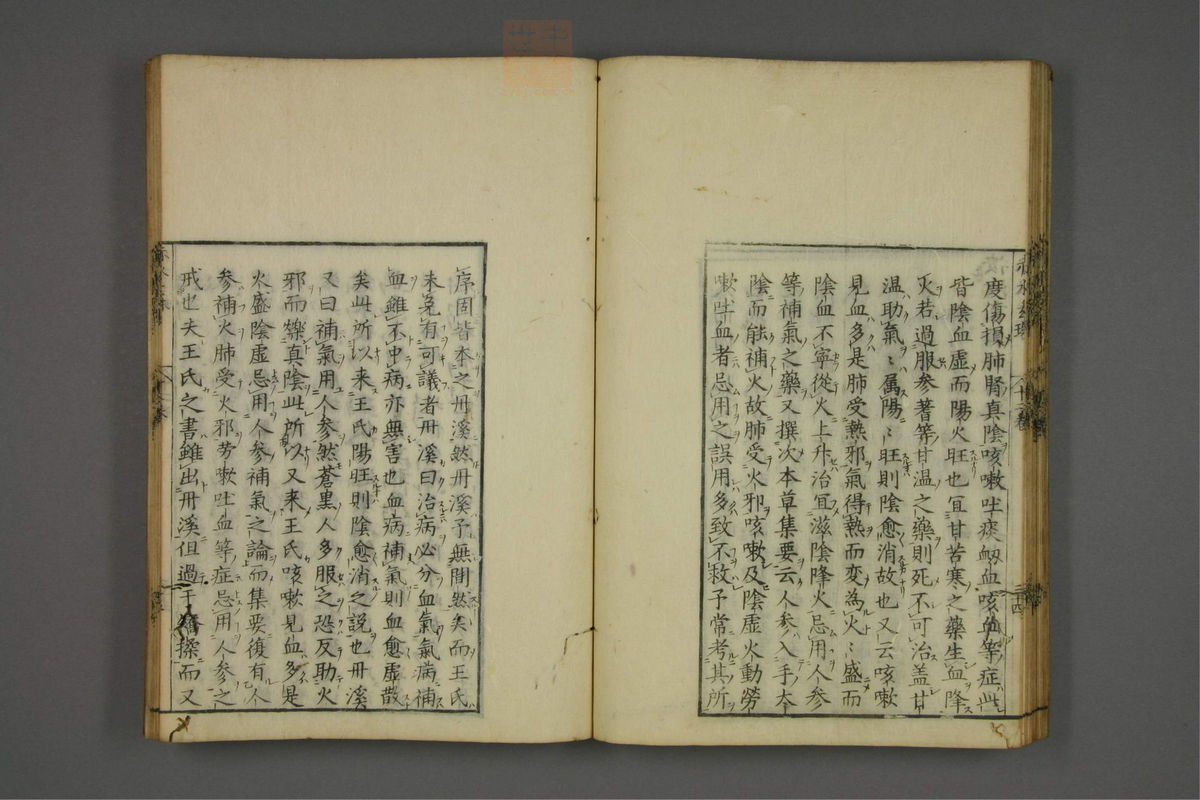 度傷損肺腎真陰咳嗽吐痰衂血咳血等症此
皆陰血虛而陽火旺也冝甘苦寒之藥生血降
火若過服參蓍等甘温之藥則死不可治盖甘
温助氣〻属陽〻旺則陰愈消故也又云咳嗽
見血多是肺受熱邪氣得熱而变為火〻盛而
陰血不寧從火上升治冝滋陰降火忌用人參
等補氣之藥又撰次本草集要云人參入手太
陰而能補火故肺受火邪咳嗽及陰虚火動勞
嗽吐血者忌用之誤用多致不救予常考其所
序固皆本之丹溪然丹溪予無間然矣而王氏
未免有可議者丹溪曰治病必分血氣氣病補
血雖不中病亦無害也血病補氣則血愈虚散
矣此所以来王氏陽旺則陰愈消之説也丹溪
又曰補氣用人參然蒼黒人多服之恐反助火
邪而爍真陰此所以又来王氏咳嗽見血多是
火盛陰虚忌用人參補氣之論而集要復有人
參補火肺受火邪劳嗽吐血等症忌用人參之
戒也夫王氏之書雖出丹溪但過于矯揉而又